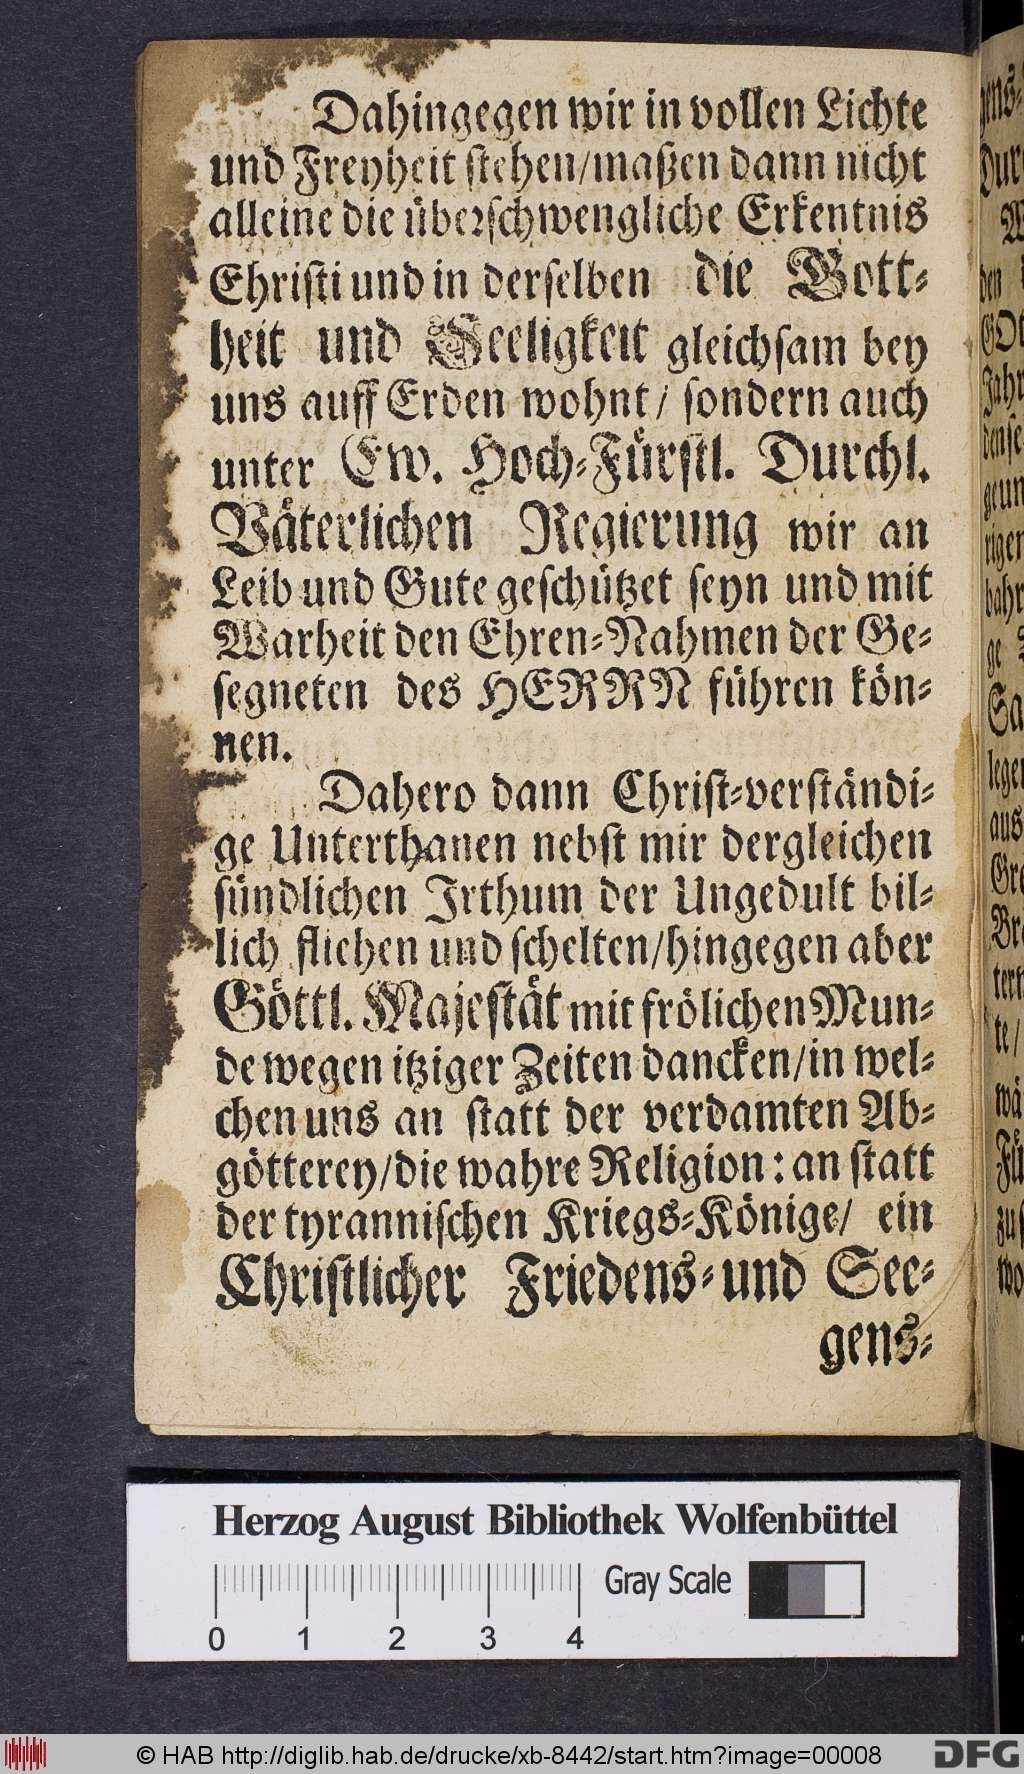 Dahingegen wir in vollen Lichte
und Freyheit stehen/maßen dann nicht
alleine die überschwengliche Erkentnis
Christi und in derselben die Gott-
heit und Seeligkeit gleichsam bey
uns auff Erden wohnt/ sondern auch
unter Ew. Hoch-Fürstl. Durchl.
Väterlichen Regierung wir an
Leib und Gute geschützet seyn und mit
Warheit den Ehren-Nahmen der Ge-
segneten des HERRN führen kön-
nen.
Dahero dann Christ-verständi-
ge Unterthanen nebst mir dergleichen
sündlichen Irthum der Ungedult bil-
lich fliehen und schelten/hingegen aber
Göttl. Majestät mit frölichen Mun-
de wegen itziger Zeiten dancken/in wel-
chen uns an statt der verdamten Ab-
götterey/die wahre Religion: an statt
der tyrannischen Kriegs-Könige/ ein
Christlicher Friedens- und See-
gens-
Herzog August Bibliothek Wolfenbüttel
Gray Scale
0 1 2 3 4
© HAB http://diglib.hab.de/drucke/xb-8442/start.htm?image=00008
DFG